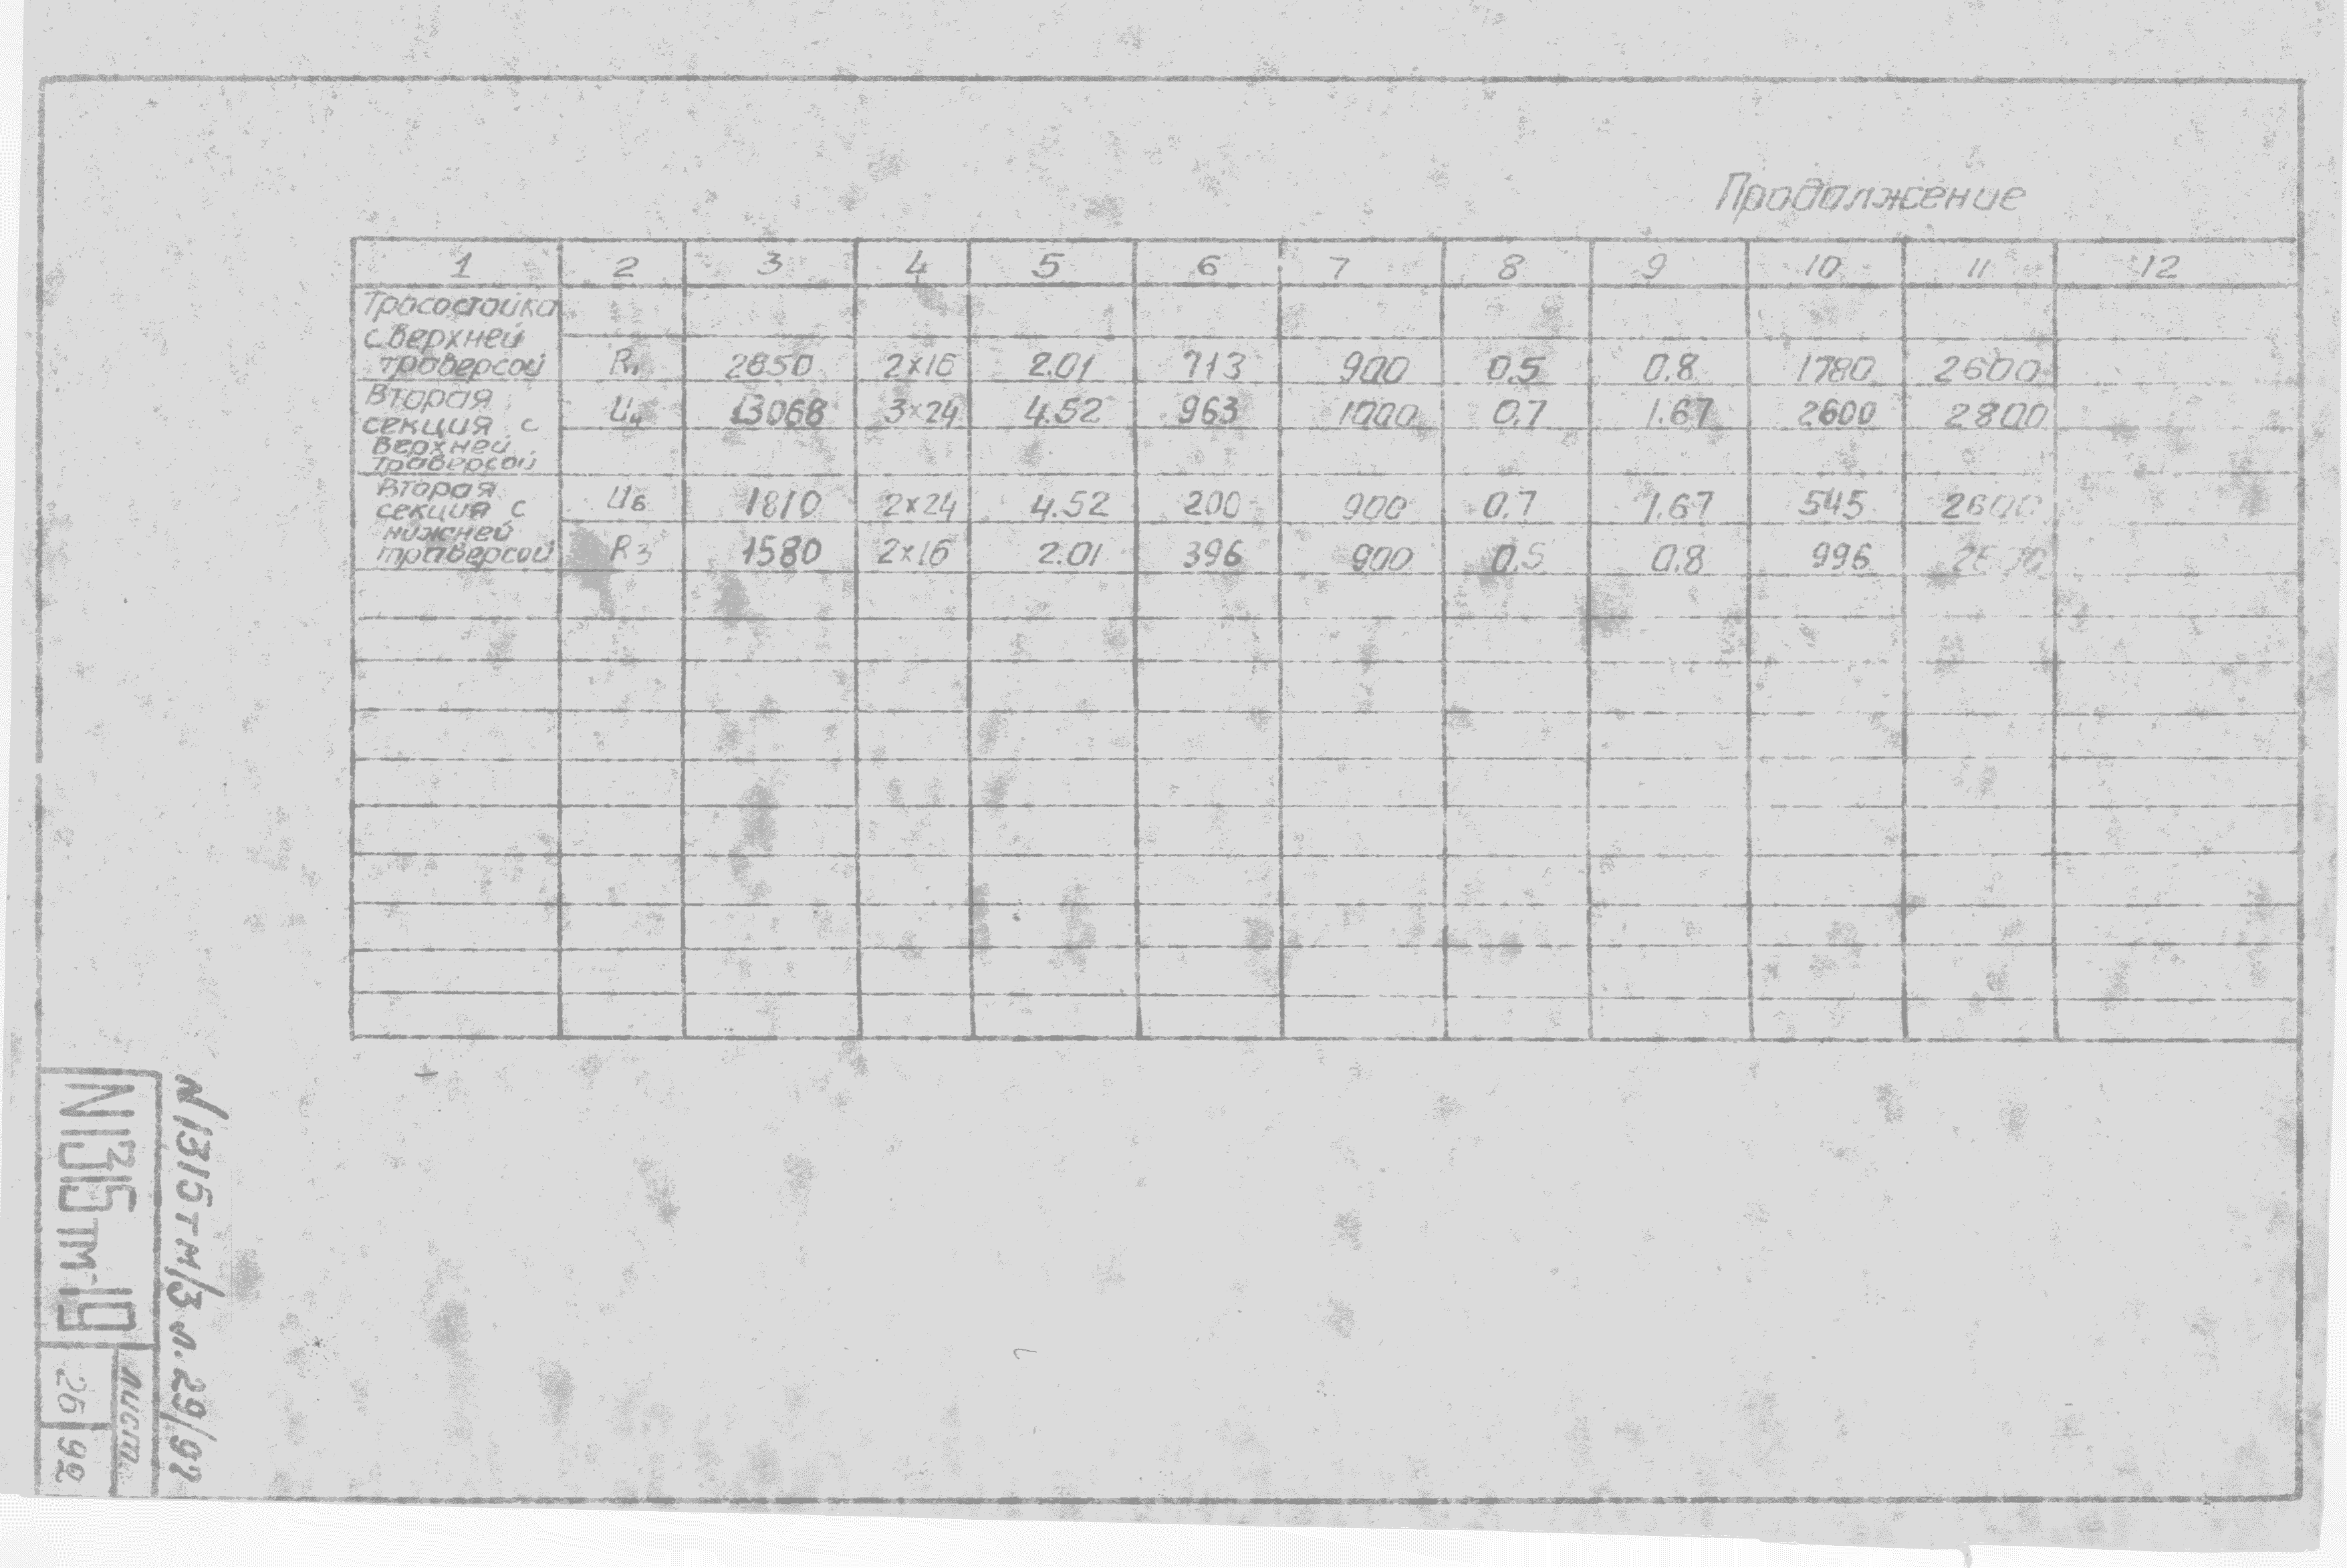 Продолжение
1 2 3 4 5 6 7 8 9 10 11 12
Тросостойка
с верхней
траверсой R₁ 2850 2×16 2.01 713 900 0.5 0.8 1780 2600
Вторая U₄ 13068 3×24 4.52 963 1000 0.7 1.67 2600 2800
секция с
верхней
траверсой
Вторая U₆ 1810 2×24 4.52 200 900 0.7 1.67 545 2600
секция с
нижней
траверсой R₃ 1580 2×16 2.01 396 900 0.5 0.8 996
N1315тм/3 л.29/97
лист
26 92